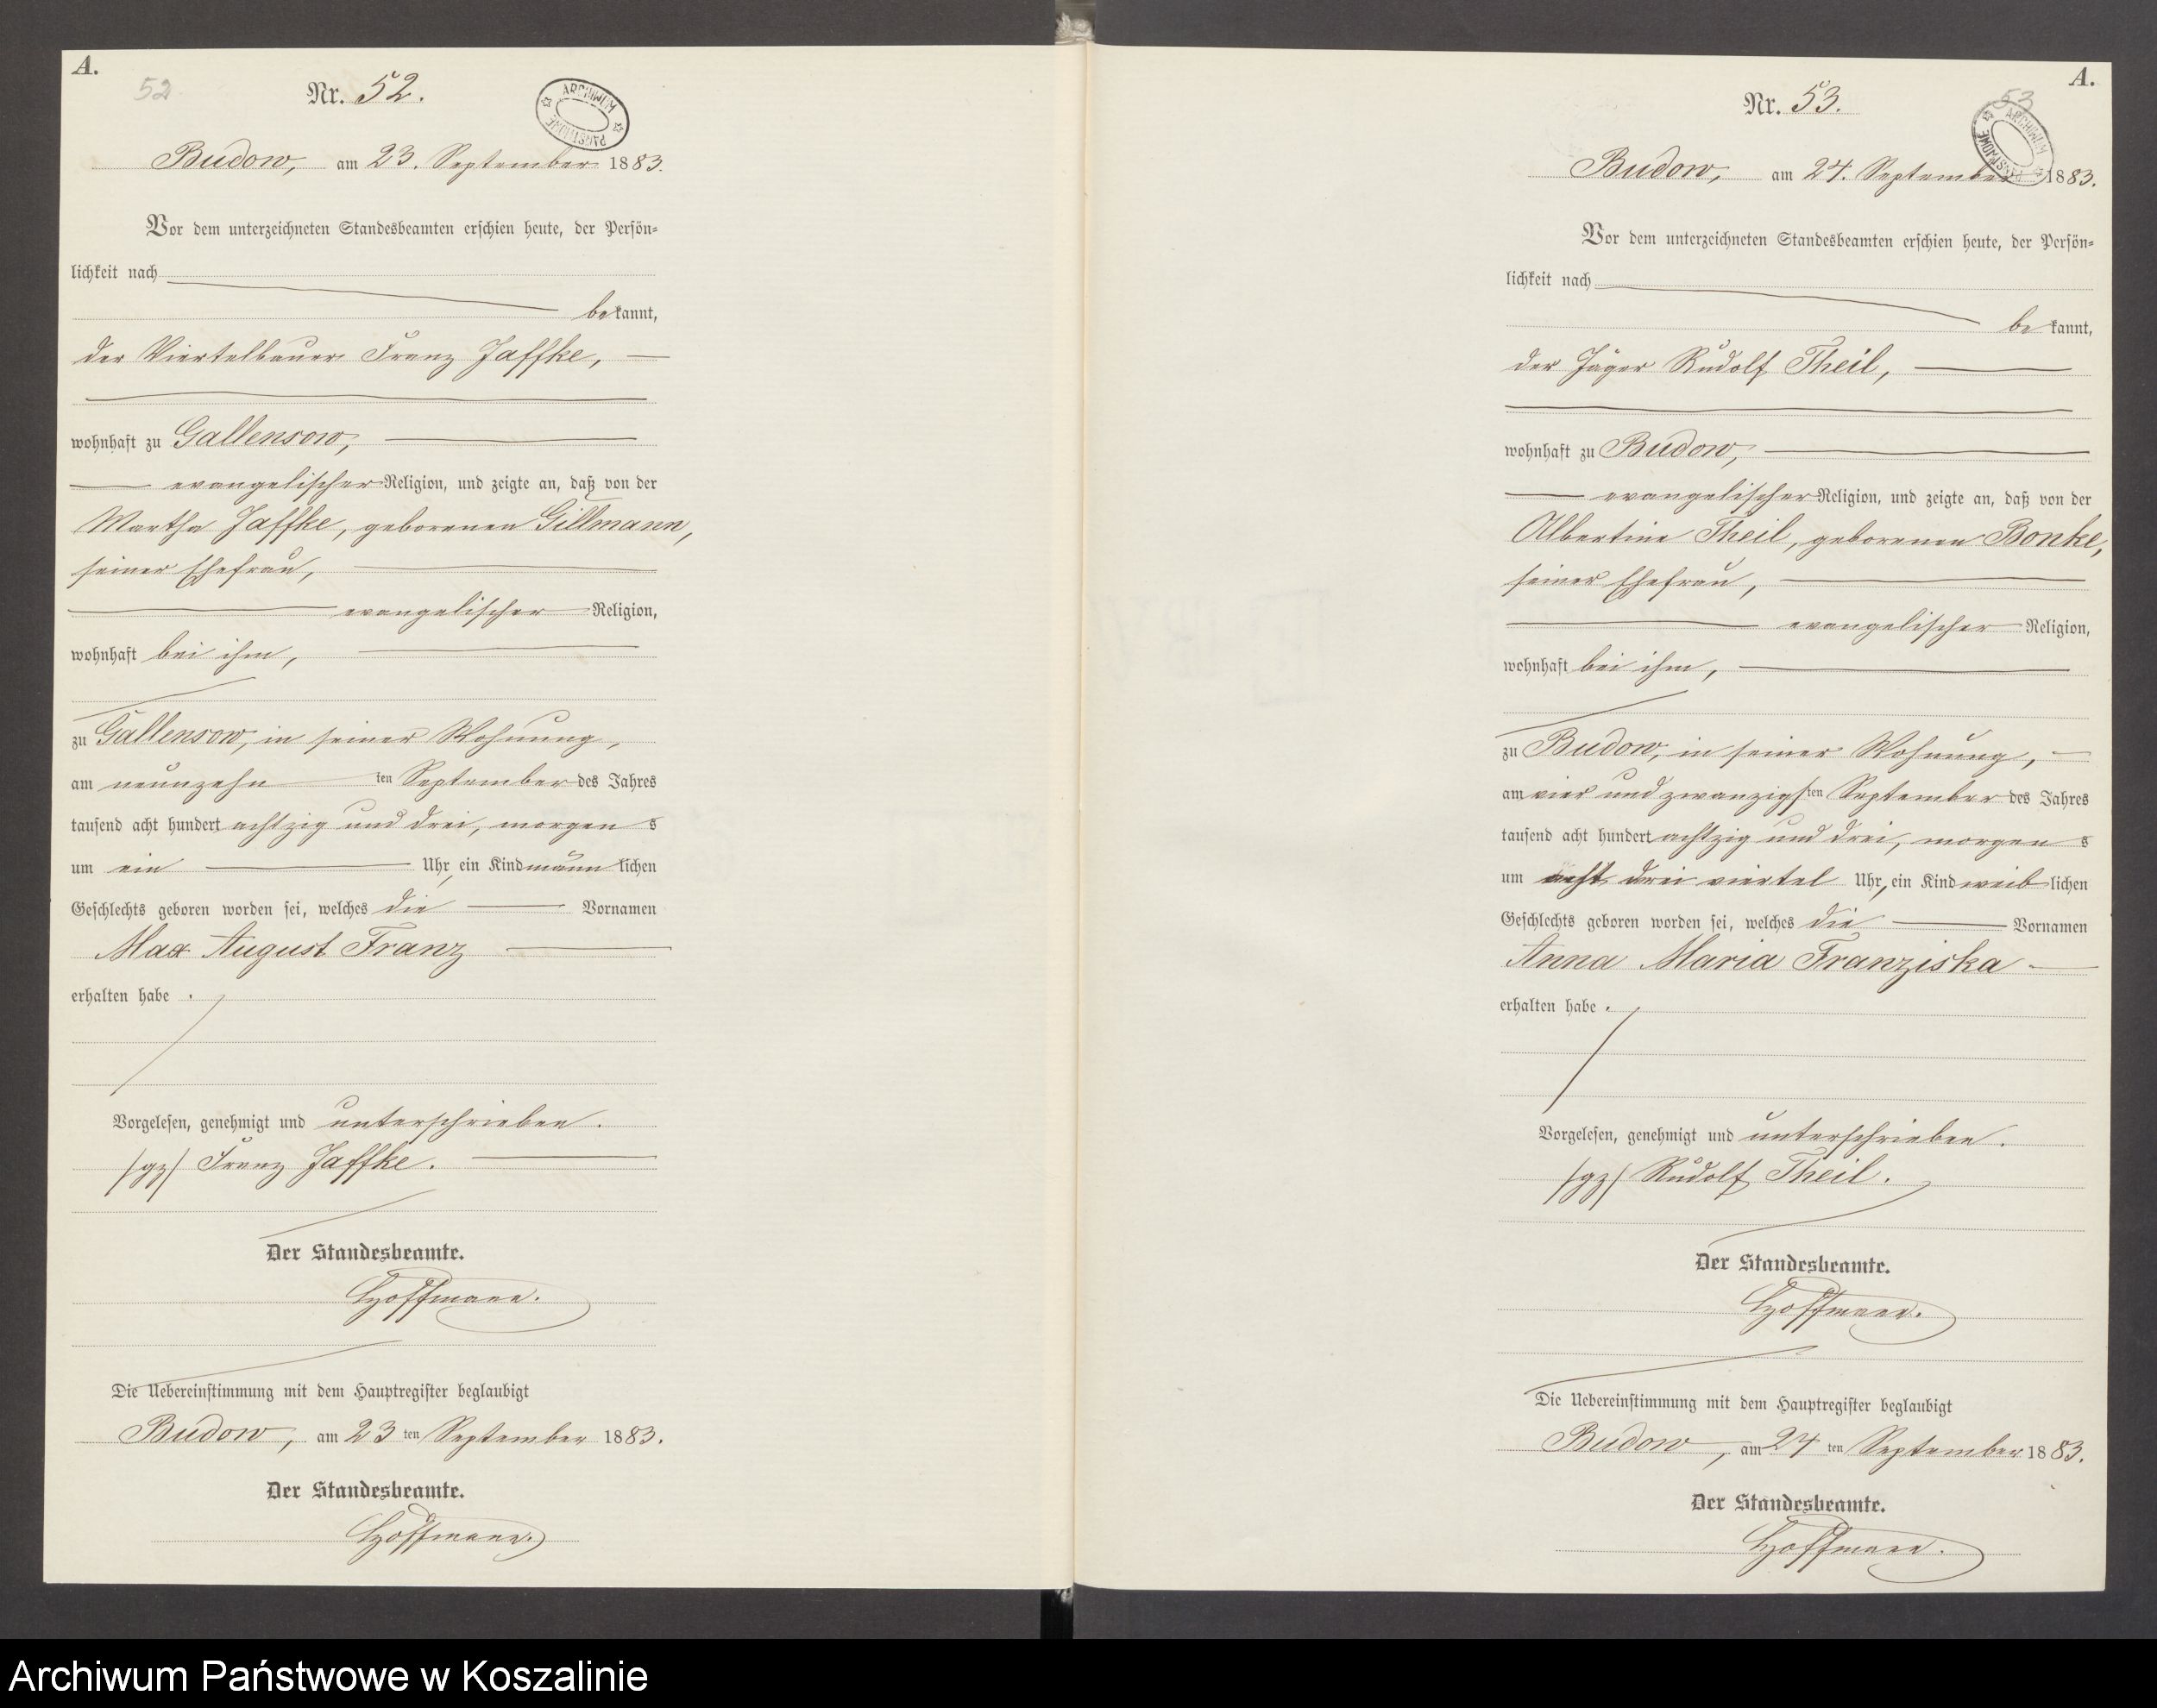 A.
52
Nr. 52.
ARCHIWUM PAŃSTWOWE
Budow, am 23. September 1883.
Vor dem unterzeichneten Standesbeamten erschien heute, der Persön-
lichkeit nach
bekannt,
der Viertelbauer Franz Jaffke,
wohnhaft zu Gallensow,
evangelischer Religion, und zeigte an, daß von der
Martha Jaffke, geborenen Gillmann,
seiner Ehefrau,
evangelischer Religion,
wohnhaft bei ihm,
zu Gallensow, in seiner Wohnung,
am neunzehn ten September des Jahres
tausend acht hundert achtzig und drei, morgens
um ein Uhr, ein Kind männlichen
Geschlechts geboren worden sei, welches die Vornamen
Max August Franz
erhalten habe.
Vorgelesen, genehmigt und unterschrieben.
/gz/ Franz Jaffke.
Der Standesbeamte.
Hoffmann.
Die Uebereinstimmung mit dem Hauptregister beglaubigt
Budow, am 23 ten September 1883.
Der Standesbeamte.
Hoffmann.
A.
53
Nr. 53.
ARCHIWUM PAŃSTWOWE
Budow, am 24. September 1883.
Vor dem unterzeichneten Standesbeamten erschien heute, der Persön-
lichkeit nach
bekannt,
der Jäger Rudolf Theil,
wohnhaft zu Budow,
evangelischer Religion, und zeigte an, daß von der
Albertine Theil, geborenen Bonke,
seiner Ehefrau,
evangelischer Religion,
wohnhaft bei ihm,
zu Budow, in seiner Wohnung,
am vier und zwanzigsten September des Jahres
tausend acht hundert achtzig und drei, morgens
um acht drei viertel Uhr, ein Kind weiblichen
Geschlechts geboren worden sei, welches die Vornamen
Anna Maria Franziska
erhalten habe.
Vorgelesen, genehmigt und unterschrieben.
/gz/ Rudolf Theil.
Der Standesbeamte.
Hoffmann.
Die Uebereinstimmung mit dem Hauptregister beglaubigt
Budow, am 24 ten September 1883.
Der Standesbeamte.
Hoffmann.
Archiwum Państwowe w Koszalinie